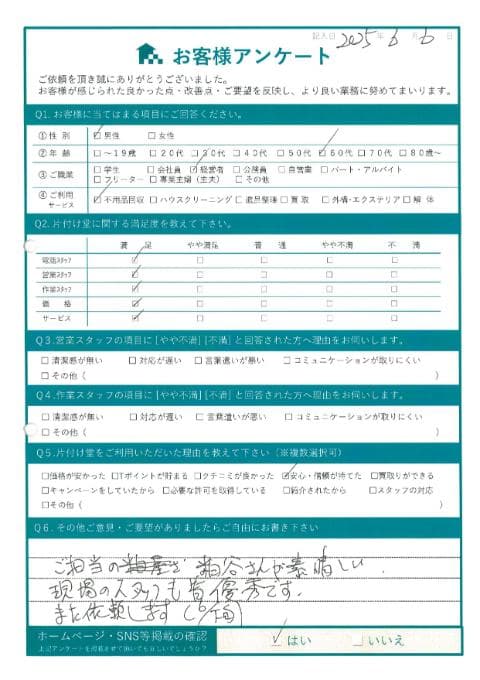 記入日 2025年 6月 6日
お客様アンケート
ご依頼を頂き誠にありがとうございました。
お客様が感じられた良かった点・改善点・ご要望を反映し、より良い業務に努めてまいります。
Q1. お客様に当てはまる項目にご回答ください。
①性 別 ☑男性 □女性
②年 齢 □～19歳 □20代 □30代 □40代 □50代 ☑60代 □70代 □80歳～
③ご職業 □学生 □会社員 ☑経営者 □公務員 □自営業 □パート・アルバイト
□フリーター □専業主婦（主夫） □その他
④ご利用サービス ☑不用品回収 □ハウスクリーニング □遺品整理 □買取 □外構・エクステリア □解 体
Q2. 片付け堂に関する満足度を教えて下さい。
満 足 やや満足 普 通 やや不満 不 満
電話スタッフ ☑ □ □ □ □
営業スタッフ ☑ □ □ □ □
作業スタッフ ☑ □ □ □ □
価 格 ☑ □ □ □ □
サービス ☑ □ □ □ □
Q3. 営業スタッフの項目に [やや不満] [不満] と回答された方へ理由をお伺いします。
□清潔感が無い □対応が遅い □言葉遣いが悪い □コミュニケーションが取りにくい
□その他（ ）
Q4. 作業スタッフの項目に [やや不満] [不満] と回答された方へ理由をお伺いします。
□清潔感が無い □対応が遅い □言葉遣いが悪い □コミュニケーションが取りにくい
□その他（ ）
Q5. 片付け堂をご利用いただいた理由を教えて下さい（※複数選択可）
□価格が安かった □Tポイントが貯まる □クチコミが良かった ☑安心・信頼が持てた □買取りができる
□キャンペーンをしていたから □必要な許可を取得している □紹介されたから □スタッフの対応
□その他（ ）
Q6. その他ご意見・ご要望がありましたらご自由にお書き下さい
ご担当の 粕谷さんが素晴しい.
現場のスタッフも皆優秀です.
また依頼します
ホームページ・SNS等掲載の確認 ☑はい □いいえ
上記アンケートを掲載させて頂いてもよろしいでしょうか？